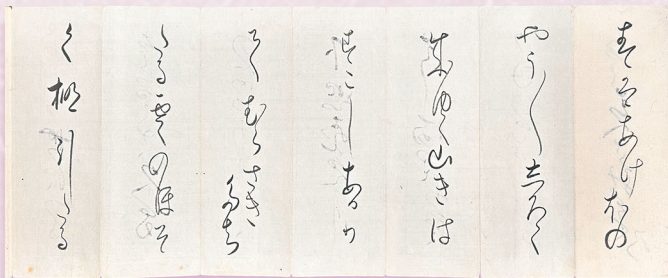 春はあけほの
やう〳〵しろく
成ゆく山きは
すこしあかり
てむらさきたち
たる雲のほそ
く棚引たる